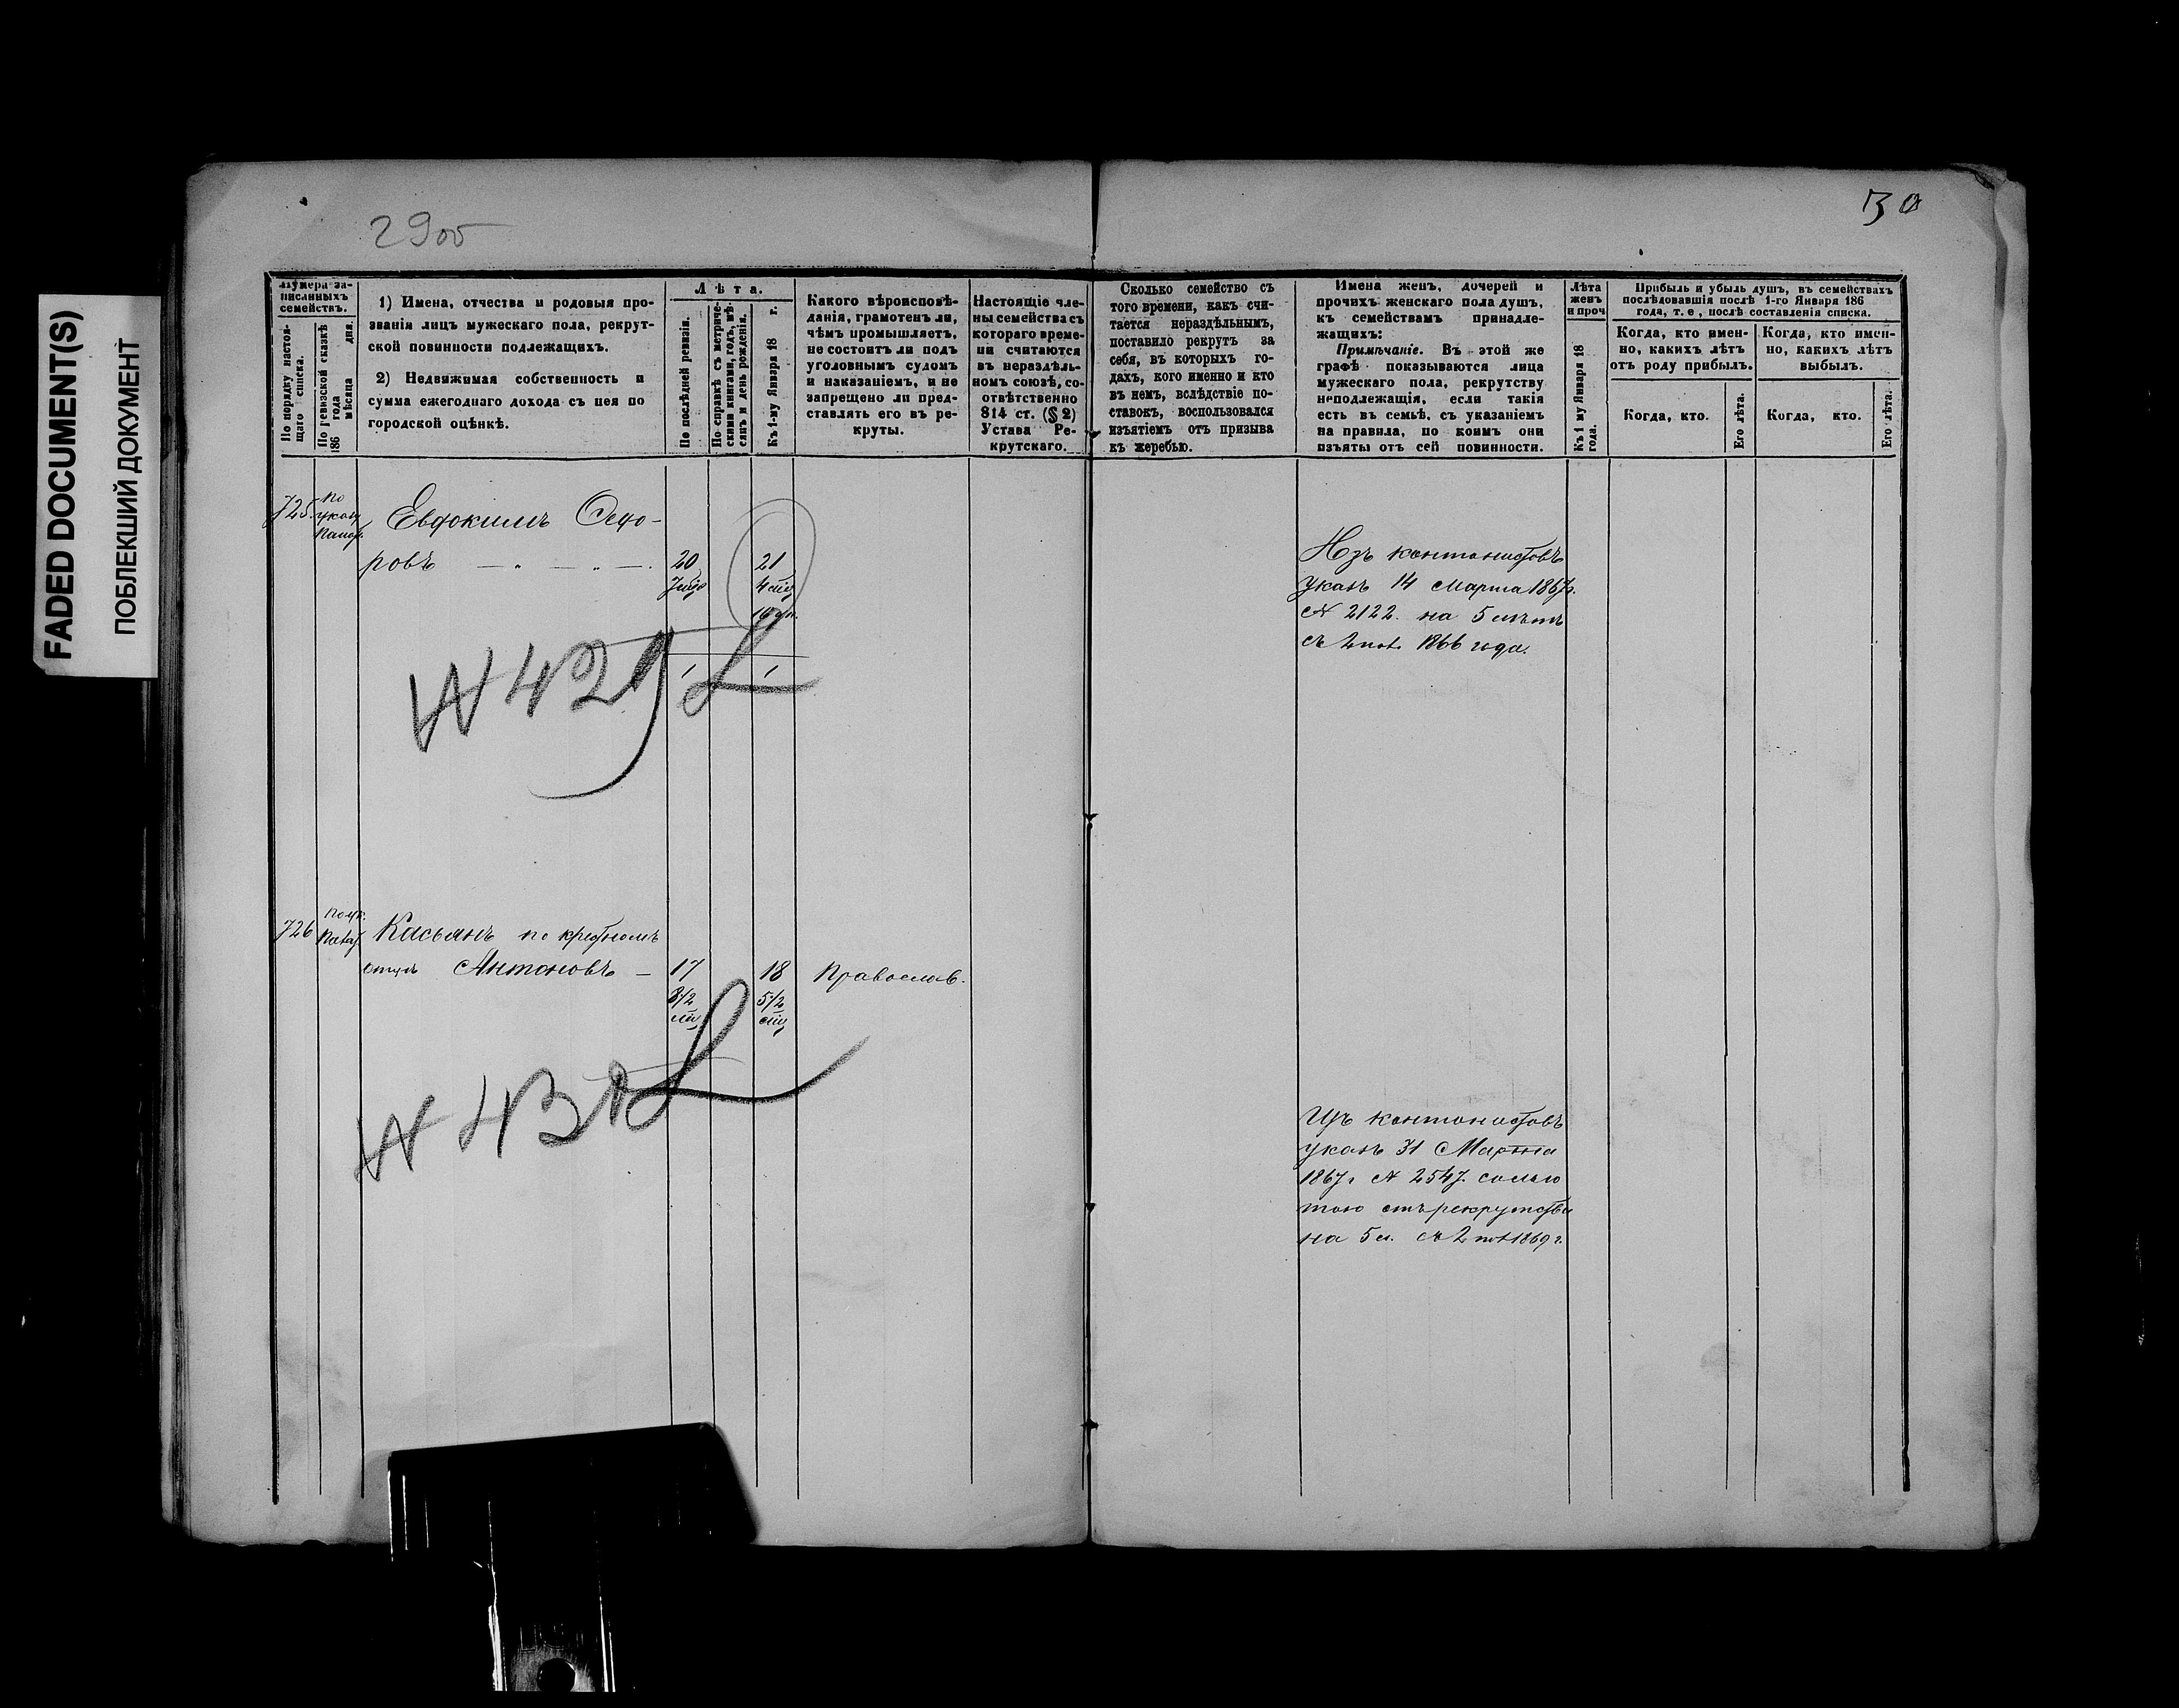 FADED DOCUMENT(S)
ПОБЛЕКШИЙ ДОКУМЕНТ
29об
30
Нумера за-
писанныхъ
семействъ.
По порядку настоя-
щаго списка.
По ревизской сказкѣ
186 года мѣсяца дня.
1) Имена, отчества и родовыя про-
званія лицъ мужескаго пола, рекрут-
ской повинности подлежащихъ.
2) Недвижимая собственность и
сумма ежегоднаго дохода съ нея по
городской оцѣнкѣ.
Лѣта.
По послѣдней ревизіи.
По справкѣ съ метриче-
скими книгами, годъ, мѣ-
сяцъ и день рожденія.
Къ 1-му Января 18 г.
Какого вѣроисповѣ-
данія, грамотенъ ли,
чѣмъ промышляетъ,
не состоитъ ли подъ
уголовнымъ судомъ
и наказаніемъ, и не
запрещено ли пред-
ставлять его въ ре-
круты.
Настоящіе чле-
ны семейства съ
котораго време-
ни считаются
въ нераздѣль-
номъ союзѣ, со-
отвѣтственно
814 ст. (§ 2)
Устава Ре-
крутскаго.
Сколько семейство съ
того времени, какъ счи-
тается нераздѣльнымъ,
поставило рекрутъ за
себя, въ которыхъ го-
дахъ, кого именно и кто
въ немъ, вслѣдствіе по-
ставокъ, воспользовался
изъятіемъ отъ призыва
къ жеребью.
Имена женъ, дочерей и
прочихъ женскаго пола душъ,
къ семействамъ принадле-
жащихъ:
Примѣчаніе. Въ этой же
графѣ показываются лица
мужескаго пола, рекрутству
неподлежащія, если такія
есть въ семьѣ, съ указаніемъ
на правила, по коимъ они
изъяты отъ сей повинности.
Лѣта
женъ
и проч
Къ 1 му Января 18
года.
Прибыль и убыль душъ, въ семействахъ
послѣдовавшія послѣ 1-го Января 186
года, т. е, послѣ составленія списка.
Когда, кто имен-
но, какихъ лѣтъ
отъ роду прибылъ.
Когда, кто.
Его лѣта.
Когда, кто имен-
но, какихъ лѣтъ
выбылъ.
Когда, кто.
Его лѣта.
725. по
указу
Евдокимъ Ѳедо-
ровъ 20 21
4 мц
1 1
N 429
Изъ кантонистовъ
указъ 14 Марта 1867г.
N 2122. на 5 лѣтъ
съ 1866 года.
726 Касьянъ по крестномъ
отцѣ Антоновъ — 17 18 Православ.
8/2 5/2
мц мц
N 430
Изъ кантонистовъ
указъ 31 Марта
1867г N 2547. сольго
тою отъ рекрутства
на 5 л. съ 1869г.